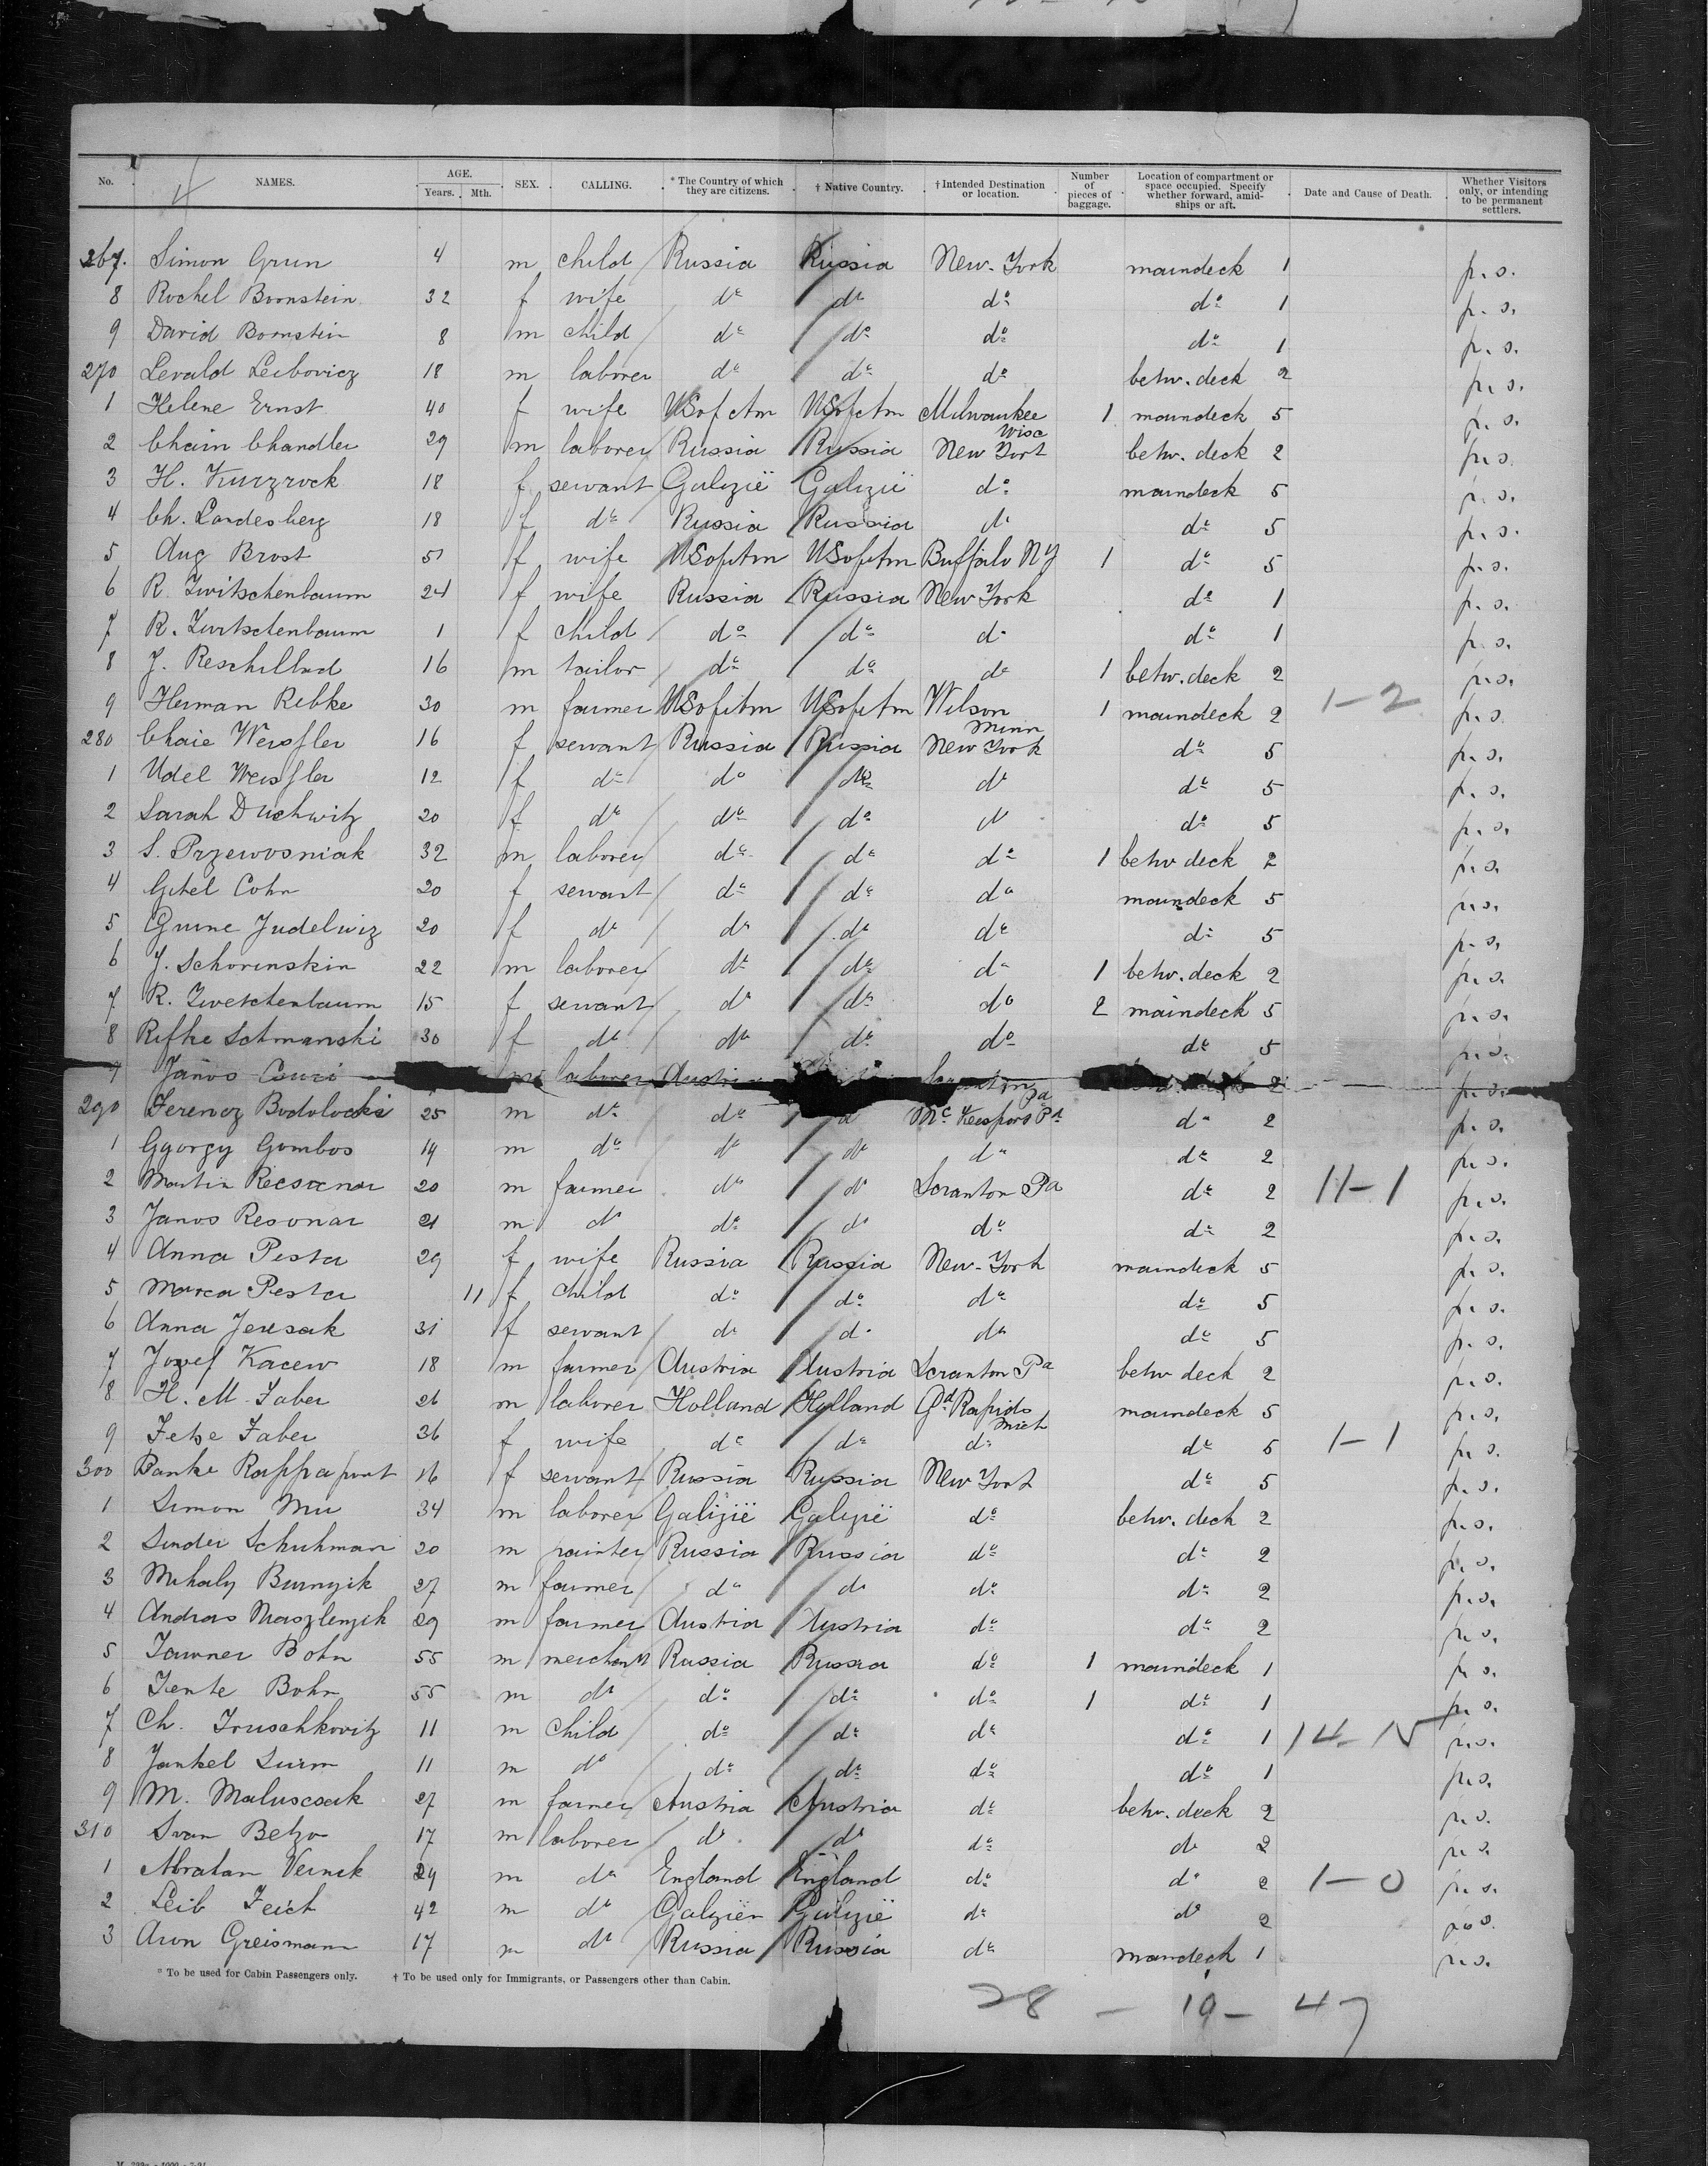 No. NAMES. AGE. Years. Mth. SEX. CALLING. * The Country of which they are citizens. † Native Country. † Intended Destination or location. Number of pieces of baggage. Location of compartment or space occupied. Specify whether forward, amidships or aft. Date and Cause of Death. Whether Visitors only, or intending to be permanent settlers.
267. Simon Grun 4 m child Russia Russia New-York maindeck 1 p.s.
8 Rochel Bornstein 32 f wife do do do do 1 p.s.
9 David Bornstein 8 m child do do do do 1 p.s.
270 Levald Leibovicz 18 m laborer do do do betw. deck 2 p.s.
1 Helene Ernst 40 f wife USofAm USofAm Milwaukee Wisc 1 maindeck 5 p.s.
2 Chaim Chandler 29 m laborer Russia Russia New York betw. deck 2 p.s.
3 H. Kurzrock 18 f servant Galizië Galizië do maindeck 5 p.s.
4 Ch. Landesberg 18 f do Russia Russia do do 5 p.s.
5 Aug Brost 51 f wife USofAm USofAm Buffalo NY 1 do 5 p.s.
6 R. Zwitschenbaum 24 f wife Russia Russia New York do 1 p.s.
7 R. Zwitschenbaum 1 f child do do do do 1 p.s.
8 J. Reschillad 16 m tailor do do do 1 betw. deck 2 p.s.
9 Herman Rebke 30 m farmer USofAm USofAm Wilson Minn 1 maindeck 2 1-2 p.s.
280 Chaie Weissler 16 f servant Russia Russia New York do 5 p.s.
1 Udel Weissler 12 f do do do do do 5 p.s.
2 Sarah Duchwitz 20 f do do do do do 5 p.s.
3 S. Przewosniak 32 m laborer do do do 1 betw deck 2 p.s.
4 Gitel Cohn 20 f servant do do do maindeck 5 p.s.
5 Grune Judelwiz 20 f do do do do do 5 p.s.
6 J. Schorinskin 22 m laborer do do do 1 betw. deck 2 p.s.
7 R. Zwetchenbaum 15 f servant do do do 2 maindeck 5 p.s.
8 Rifke Schmanski 30 f do do do do do 5 p.s.
9 Janos Csuri m laborer Austria Pa 2 p.s.
290 Ferencz Bodolocki 25 m do do d Mc Keesport Pa do 2 p.s.
1 Gyorgy Gombos 19 m do do do do do 2 p.s.
2 Martin Recsonar 20 m farmer do do Scranton Pa do 2 11-1 p.s.
3 Janos Resonar 21 m do do do do do 2 p.s.
4 Anna Pesta 29 f wife Russia Russia New-York maindeck 5 p.s.
5 Marca Pesta 11 f child do do do do 5 p.s.
6 Anna Jeusak 31 f servant do do do do 5 p.s.
7 Jozef Kacew 18 m farmer Austria Austria Scranton Pa betw deck 2 p.s.
8 H. M. Faber 26 m laborer Holland Holland Gd Rapids Mich maindeck 5 p.s.
9 Fetse Faber 36 f wife do do do do 5 1-1 p.s.
300 Banke Rappaport 16 f servant Russia Russia New York do 5 p.s.
1 Simon Mu 34 m laborer Galizië Galizië do betw. deck 2 p.s.
2 Sender Schuhman 20 m painter Russia Russia do do 2 p.s.
3 Mihaly Burnyik 27 m farmer do do do do 2 p.s.
4 Andras Maszlenyik 29 m farmer Austria Austria do do 2 p.s.
5 Tawner Bohn 55 m merchant Russia Russia do 1 maindeck 1 p.s.
6 Jente Bohn 55 m do do do do 1 do 1 p.s.
7 Ch. Truschkovitz 11 m child do do do do 1 p.s.
8 Jankel Surm 11 m do do do do do 1 p.s.
9 M. Maluscsak 27 m farmer Austria Austria do betw. deck 2 p.s.
310 Ivan Betzo 17 m laborer do do do do 2 p.s.
1 Abraham Vernik 29 m do England England do do 2 1-0 p.s.
2 Leib Feich 42 m do Galizien Galizië do do 2 p.s.
3 Aron Greismann 17 m do Russia Russia do maindeck 1 p.s.
* To be used for Cabin Passengers only. † To be used only for Immigrants, or Passengers other than Cabin.
28 - 19 - 47